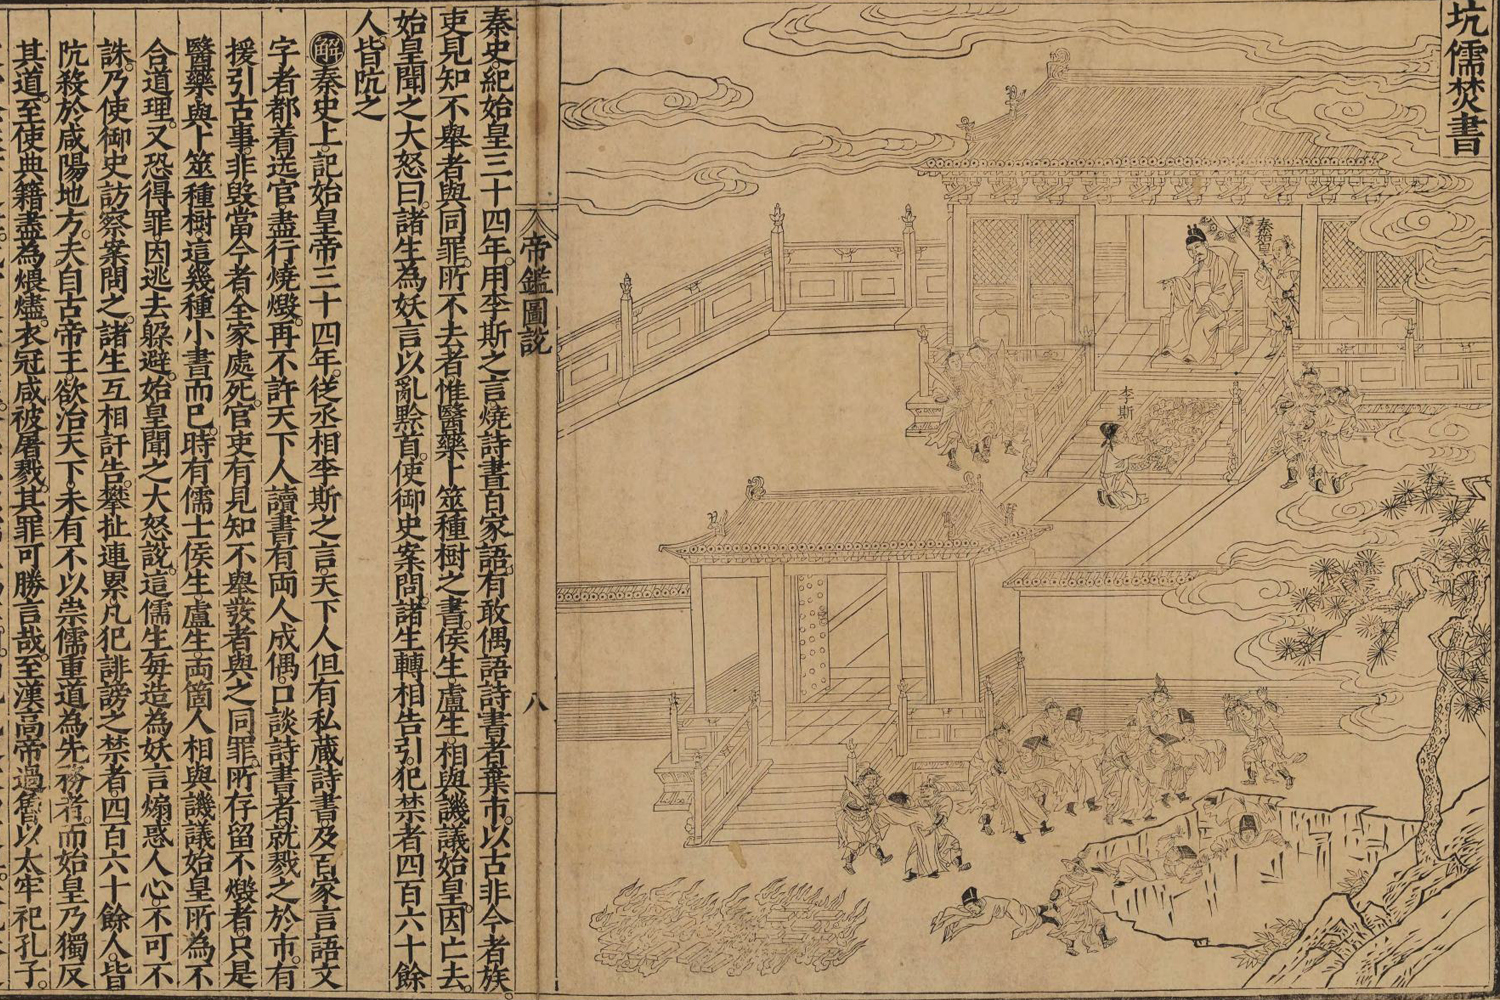 坑儒焚書
秦始皇
李斯
帝鑑圖説
八
秦史紀始皇三十四年用李斯之言燒詩書百家語有敢偶語詩書者棄市以古非今者族
吏見知不舉者與同罪所不去者惟醫藥卜筮種樹之書侯生盧生相與譏議始皇因亡去
始皇聞之大怒曰諸生為妖言以亂黔首使御史案問諸生轉相告引犯禁者四百六十餘
人皆阬之
解秦史上記始皇帝三十四年從丞相李斯之言天下人但有私蔵詩書及百家言語文
字者都着送官盡行燒燬再不許天下人讀書有両人成偶口談詩書者就戮之於市有
援引古事非毀當今者全家處死官吏有見知不舉發者與之同罪所存留不燬者只是
醫藥與卜筮種樹這幾種小書而已時有儒士侯生盧生両箇人相與譏議始皇所為不
合道理又恐得罪因逃去躲避始皇聞之大怒説這儒生每造為妖言煽惑人心不可不
誅乃使御史訪察案問之諸生互相訐告攀扯連累凡犯誹謗之禁者四百六十餘人皆
阬殺於咸陽地方夫自古帝王欲治天下未有不以崇儒重道為先務者而始皇乃獨反
其道至使典籍盡為煨燼衣冠咸被屠戮其罪可勝言哉至漢高帝過魯以太牢祀孔子